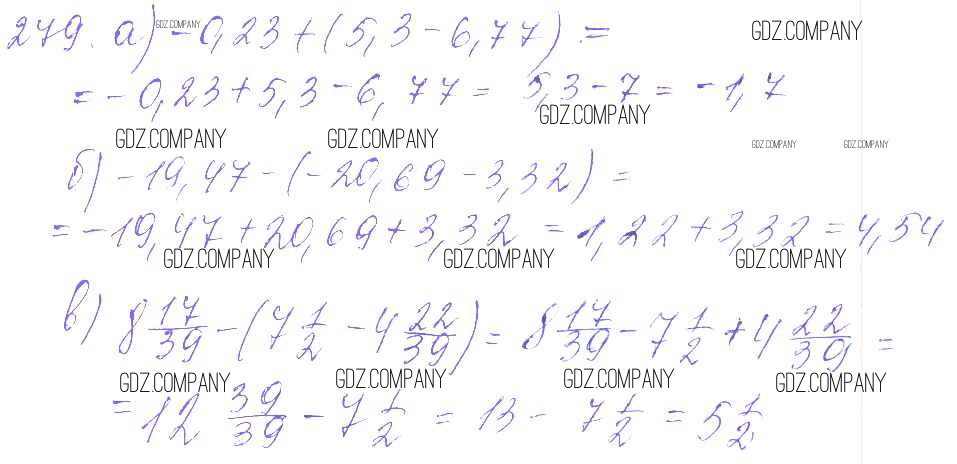 279. а) -0,23 + (5,3 - 6,77) =
= -0,23 + 5,3 - 6,77 = 5,3 - 7 = -1,7
б) -19,47 - (-20,69 - 3,32) =
= -19,47 + 20,69 + 3,32 = 1,22 + 3,32 = 4,54
в) 8 17/39 - (7 1/2 - 4 22/39) = 8 17/39 - 7 1/2 + 4 22/39 =
= 12 39/39 - 7 1/2 = 13 - 7 1/2 = 5 1/2
GDZ.COMPANY
GDZ.COMPANY
GDZ.COMPANY
GDZ.COMPANY
GDZ.COMPANY
GDZ.COMPANY
GDZ.COMPANY
GDZ.COMPANY
GDZ.COMPANY
GDZ.COMPANY
GDZ.COMPANY
GDZ.COMPANY
GDZ.COMPANY
GDZ.COMPANY